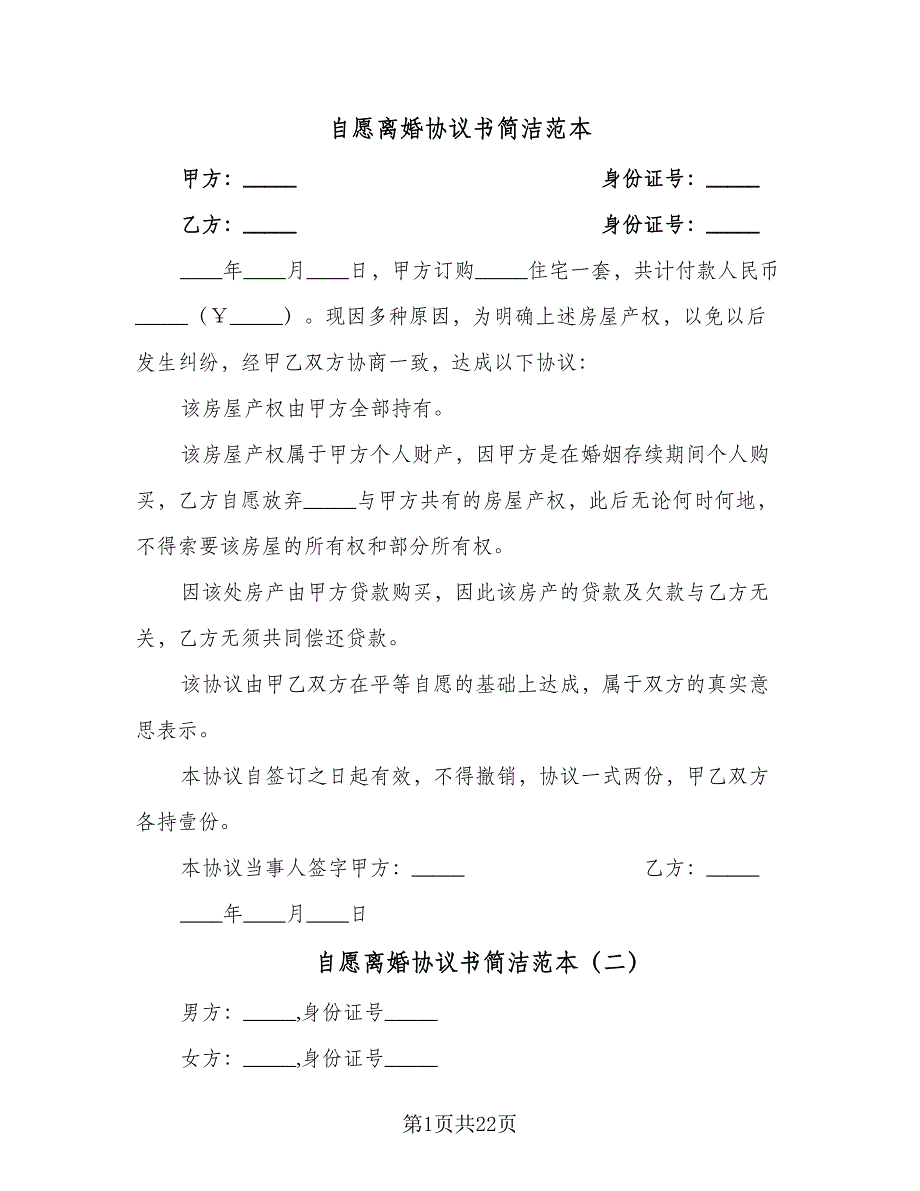 自愿离婚协议书简洁范本
甲方：_____ 身份证号：_____
乙方：_____ 身份证号：_____
____年____月____日，甲方订购_____住宅一套，共计付款人民币
_____（￥_____）。现因多种原因，为明确上述房屋产权，以免以后
发生纠纷，经甲乙双方协商一致，达成以下协议：
该房屋产权由甲方全部持有。
该房屋产权属于甲方个人财产，因甲方是在婚姻存续期间个人购
买，乙方自愿放弃_____与甲方共有的房屋产权，此后无论何时何地，
不得索要该房屋的所有权和部分所有权。
因该处房产由甲方贷款购买，因此该房产的贷款及欠款与乙方无
关，乙方无须共同偿还贷款。
该协议由甲乙双方在平等自愿的基础上达成，属于双方的真实意
思表示。
本协议自签订之日起有效，不得撤销，协议一式两份，甲乙双方
各持壹份。
本协议当事人签字甲方：_____ 乙方：_____
____年____月____日
自愿离婚协议书简洁范本（二）
男方：_____,身份证号_____
女方：_____,身份证号_____
第1页共22页